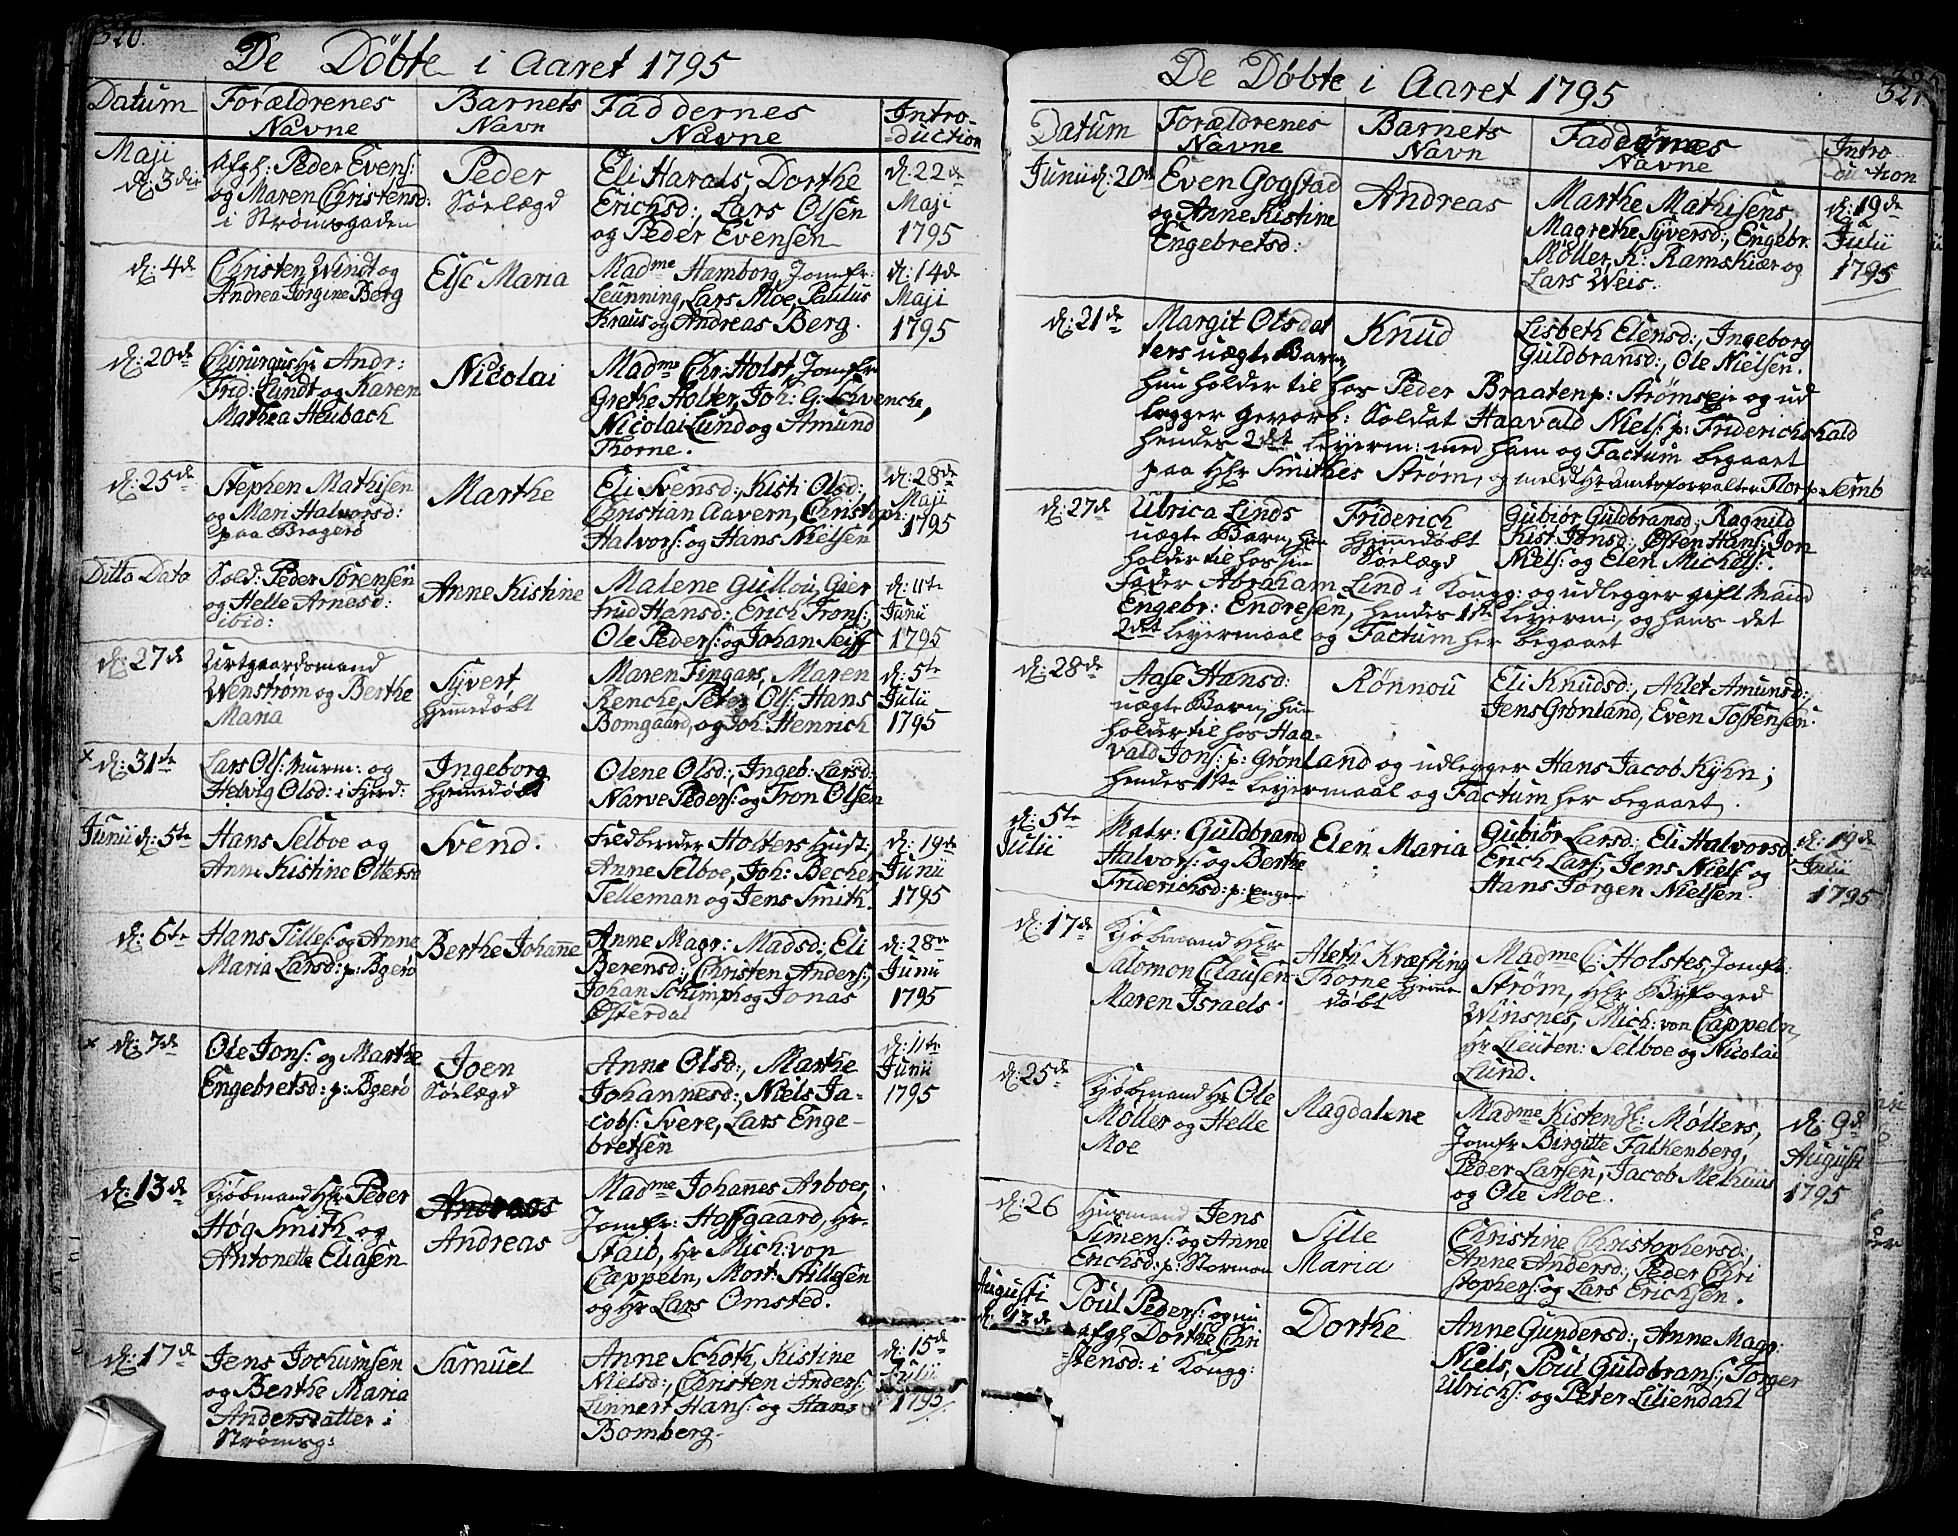 320.
De Döbte i Aaret 1795
Datum
Forældrenes Navne
Barnets Navn
Faddernes Navne
Intro-
duction
Maji
d: 3die
Afgl: Peder Evens:
og Maren Christensd:
i Strømsgaden
Peder
Sölægd
Eli Harals, Dorthe
Erichsd:, Lars Olsen
og Peder Evensen
d: 22de
Maji
1795
d: 4de
Christen Windt og
Andrea Jørgine Berg
Else Maria
Madme Hamborg, Jomfr:
Leunning, Lars Moe, Paulus
Kraus og Andreas Berg.
d: 14de
Maji
1795
d: 20de
Chirurgus Hr Andr:
Frid: Lundt og Karen
Mathea Heubach
Nicolai
Madme Chr: Holst, Jomfr
Grethe Holter, Joh: G: Schvencke,
Nicolai Lund og Amund
Thorne.
d: 25de
Stephen Mathisen
og Mari Halvorsd:
paa Bragerö
Marthe
Eli Svensd:, Kisti Olsd:,
Christian Aavern, Christop:
Halvors: og Hans Nielsen
d: 28de
Maji
1795
Ditto Dato
Sold: Peder Sörensen
og Helle Arnesd:
ibid:
Anne Kistine
Malene Gullou, Gier
trud Hansd:, Erich Trons:,
Ole Peders: og Johan Seiff
d: 11te
Junii
1795
d: 27de
Urtgaardsmand
Wenstrøm og Berthe
Maria
Syvert
hjemedöbt
Maren Fingars, Maren
Rencke, Peter Ols: Hans
Bomgaard, og Joh: Henrich
d: 5te
Julii
1795
x d: 31te
Lars Ols: Murm: og
Helvig Olsd: i Fjerd:
Ingeborg
hjemedöbt
Olene Olsd:, Ingeb: Larsd:
Narve Peders: og Tron Olsen
Junii d: 5te
Hans Selboe og
Anne Kistine Ottersd
Svend.
Feldbereder Holters Hust:
Anne Selboe, Joh: Becher
Telleman og Jens Smith.
d: 19de
Junii
1795
d: 6te
Hans Tilles: og Anne
Maria Larsd: p: Bgerö
Berthe Johanne
Anne Magr: Madsd: Eli
Berensd:, Christen Anders:,
Johan Schimph og Jonas
Østerdal
d: 28de
Junii
1795
x d: 7de
Ole Jons: og Marthe
Engebretsd: p: Bgerö
Joen
Sölægd
Anne Olsd:, Marthe
Johannesd:, Niels Ja-
cobs: Svere, Lars Enge-
bretsen
d: 11te
Junii
1795
d: 13de
Kjöbmand Hr Peder
Høg Smith og
Antonette Eliasen
Andreas
Andreas
Madme Johannes Arboes,
Jomfr: Hoffgaard, Hr
Staib, Hr Mich: von
Cappeln, Mort: Stillesen
og Hr Lars Omsted.
d: 17de
Jens Jochumsen
og Berthe Maria
Andersdatter i
Strømsg:
Samuel
Anne Schoth, Kistine
Nielsd:, Christen Anders:,
Lennert Hans: og Hans
Bomberg.
d: 15de
Julii
1795
321.
De Döbte i Aaret 1795
Datum
Forældrenes Navne
Barnets Navn
Faddernes Navne
Intro
duction
Junii d: 20de
Even Gogstad
og Anne Kistine
Engebretsd:
Andreas
Marthe Mathisens
Magrethe Syversd:, Engebr.
Möller, K: Ramskiær og
Lars Weis.
d: 19de
Julii
1795
d: 21de
Margit Olsdat
ters uægte Barn
Knud
Lisbeth Elensd:, Ingeborg
Guldbransd:, Ole Nielsen.
hun holder til hos Peder Braaten p: Strømseje og ud
lægger gevorb: Soldat Haavald Niels: p: Friderichshald
hendes 2det lejerm: med ham og Factum begaaet
paa Hr Smithes Strøm, og meldt Hr Amtsforvalter Flor p: Semb
d: 27de
Ulrica Linds
uægte Barn, hun
holder til hos sin
Friderich
hjemedöbt
Sölægd
Gubiör Guldbransd:, Ragnild
Kist: Jonsd:, Østen Hans:, Jon
Niels: og Elen Michels:.
Fader Abraham Lind i Kongg: og udlegger gift Mand
Engebr: Endresen, hendes 1ste lejerm:, og hans det
2det lejermaal og Factum her begaaet
d: 28de
Aase Hansd:
uægte Barn, hun
holder til hos Haa-
Rönnou
Eli Knudsd:, Ahlet Amunsd:,
Jens Grønland, Even Tostensen.
vald Jons: p: Grønland og udlegger Hans Jacob Kyhn;
hendes 1ste lejermaal og Factum her begaaet.
d: 5te
Julii
Matr: Guldbrand
Halvors: og Berthe
Friderichsd: p: Engen
Elen Maria
Gubiör Larsd: Eli Halvorsd:
Erich Lars:, Jens Niels og
Hans Jørgen Nielsen.
d: 19de
Julii
1795
d: 17de
Kjöbmand Hr
Salomon Clausen
Maren Israels
Aleth Kræfting
Thorne hjemme
döbt
Madme C: Holstes, Jomfr:
Strøm, Hr Byfoged
Winsnes, Mich: von Cappeln,
Hr Lieuten: Selboe og Nicolai
Lund.
d: 25de
Kjöbmand Hr Ole
Möller og Helle
Moe
Magdalene
Madme Kisten H: Møllers,
Jomfr Birgitte Falkenberg,
Peder Larsen, Jacob Methuus
og Ole Moe.
d: 9de
Augusti
1795
d: 26
Husmand Jens
Simens: og Anne
Erichsd: p: Stormoen
Sille
Maria
Christine Christophersd:,
Anne Andersd:, Peder Chri
stophers: og Lars Erichsen.
Augusti
d: 13de
Poul Peders: og nu
afgl: Dorthe Chri
stensd: i Kongg:
Dorthe
Anne Gundersd:, Anne Magr:
Niels, Poul Guldbrans:, Torger
Ulrichs: og Peter Liliendahl